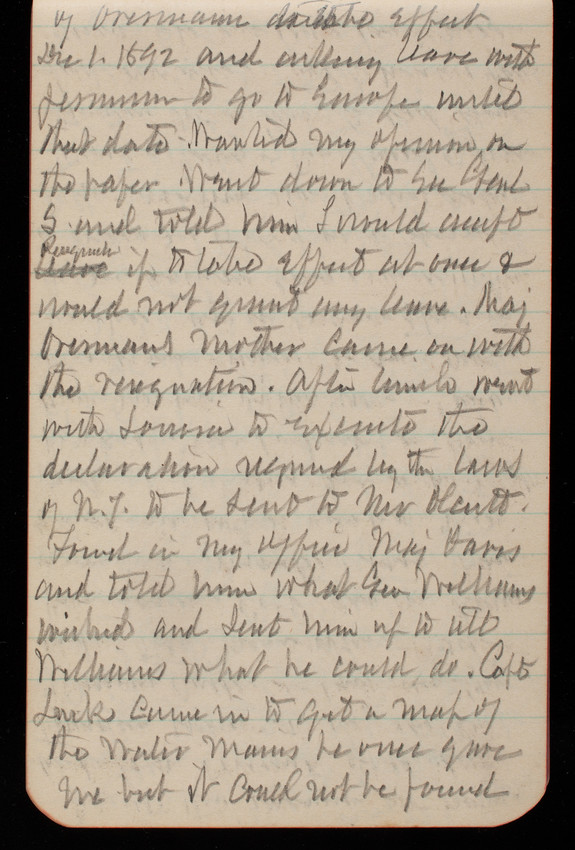 of Overmann to take effect
Dec 1. 1892 and asking leave with
permission to go to Europe until
that date. Wanted my opinion on
the paper. Went down to See Genl
S and told him I would accept
Resignatn
leave if to take effect at once &
would not grant any leave. Maj
Overmans Mother came on with
the resignation. After lunch went
with Louisa to execute the
declaration required by the laws
of N.J. to be sent to Mr Olcott.
Found in my office Maj Davis
and told him what Gen Williams
wished and sent him up to tell
Williams what he could do. Capt
came in to get a map of
the water mains he once gave
me but it could not be found